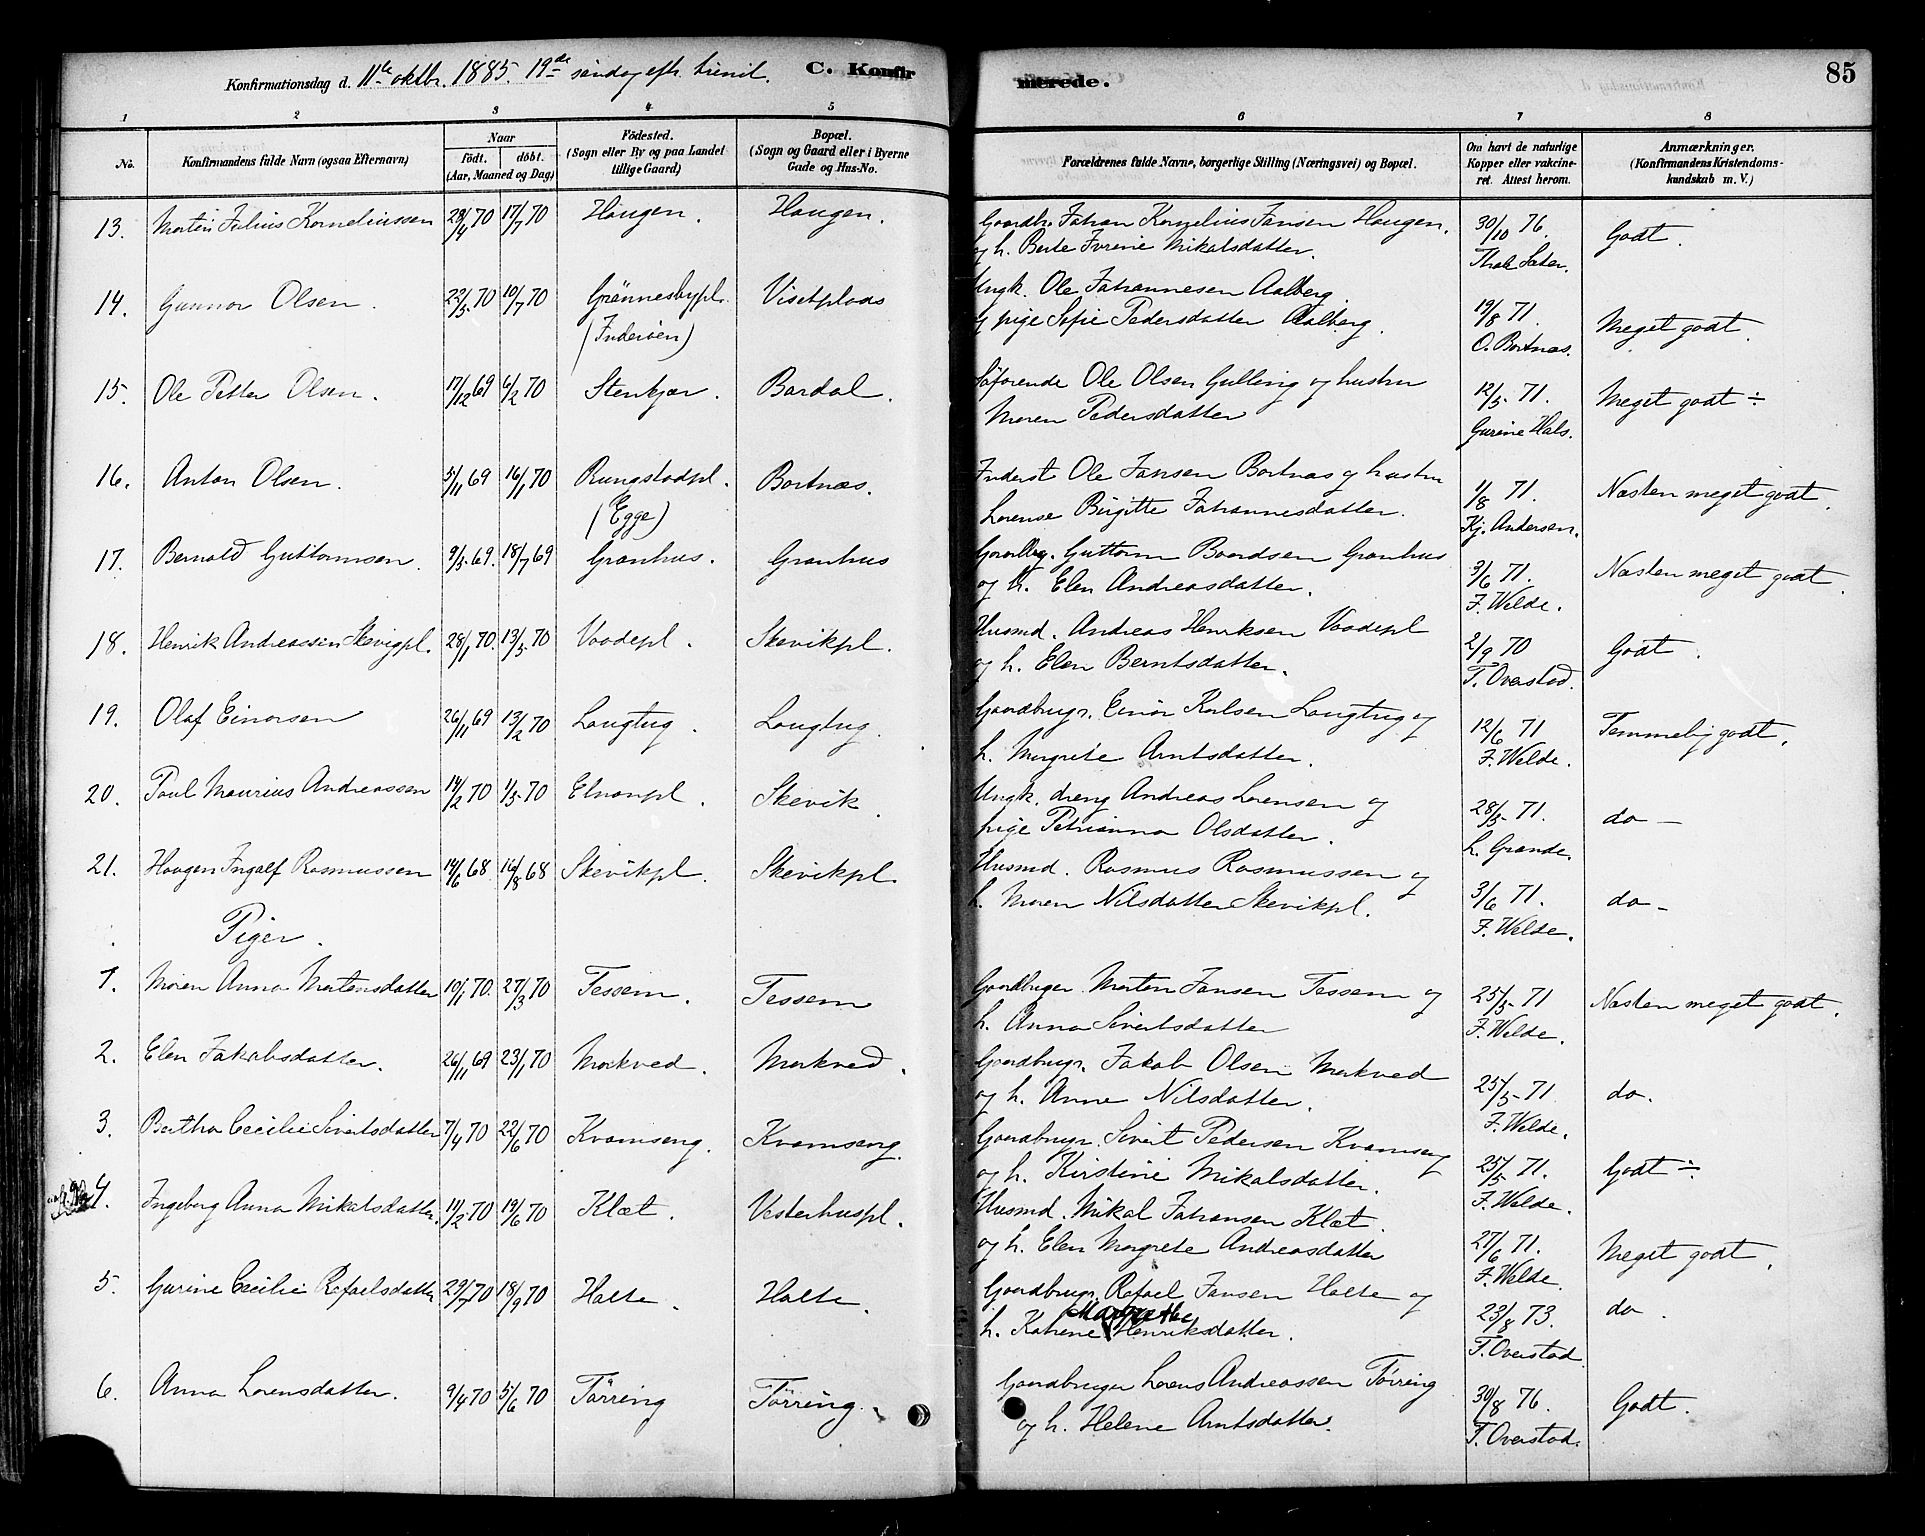 Konfirmationsdag d. 11te oktbr. 1885. 19de søndag efter trinit. C. Konfirmerede. 85
1 2 3 4 5 6 7 8
No. Konfirmandens fulde Navn (ogsaa Efternavn) Naar født. døbt. (Aar, Maaned og Dag) Fødested. (Sogn eller By og paa Landet tillige Gaard) Bopæl. (Sogn og Gaard eller i Byerne Gade og Hus-No. Forældrenes fulde Navne, borgerlige Stilling (Næringsvei) og Bopæl. Om havt de naturlige Kopper eller vakcineret. Attest herom. Anmærkninger. (Konfirmandens Kristendomskundskab m. V.)
13. Morten Julius Korneliussen 28/4 70 17/7 70 Haugen. Haugen. Gaardbr. Johan Kornelius Jansen Haugen.
og h. Berte Jvrine Mikalsdatter. 30/10 76. Godt.
14. Gunnar Olsen. 22/5 70 10/7 70 Grønnesbypl. (Inderøen) Visetplads
Ungk. Ole Johannesen Aalberg
og pige Sofie Pedersdatter Aalberg. 19/8 71. O. Bortnes. Meget godt.
15. Ole Petter Olsen. 17/12 69 6/2 70 Stenkjær. Bardal.
Søfarende Ole Olsen Gulling og hustru
Maren Pedersdatter 12/5 71. Gurine Hals. Meget godt ÷
16. Anton Olsen. 5/11 69 16/1 70 Rungstadpl. (Egge) Bortnæs.
Inderst Ole Jansen Bortnæs og hustru
Lorense Birgitte Johannesdatter. 1/8 71. Kj. Andersen. Næsten meget godt.
17. Bernald Guttormsen 9/5 69. 18/7 69 Granhus. Granhus
Gaardbrg. Guttorm Baardsen Granhus
og h. Elen Andreasdatter. 3/6 71. F. Welde. Næsten meget godt.
18. Henrik Andreassen Skevigpl. 28/1 70. 13/3 70 Vaadepl. Skevikpl.
Husmd. Andreas Henriksen Vaadepl
og h. Elen Berntsdatter. 2/9 70 T. Overstad. Godt.
19. Olaf Einarsen 26/11 69 13/2 70 Langtug. Langtug.
Gaardbrugr. Einar Karlsen Langtug og
h. Margrete Arntsdatter. 12/6 71 F. Welde. Temmelig godt.
20. Paul Maurius Andreassen 14/2 70 1/5 70 Elvranpl. Skevik.
Ungk. dreng Andreas Lorensen og
pige Petrianna Olsdatter. 28/5 71. L. Grande. do —
21. Haagen Ingolf Rasmussen 14/6 68 16/8 68 Skevikpl. Skevikpl.
Husmd. Rasmus Rasmussen og
h. Maren Nilsdatter Skevikpl. 3/6 71. F. Welde. do —
Piger.
1. Maren Anna Mortensdatter 10/1 70. 27/3 70 Tessem. Tessem
Gaardbruger Morten Jansen Tessem og
h. Anna Sivertsdatter 25/5 71 F. Welde. Næsten meget godt.
2. Elen Jakobsdatter. 26/11 69 23/1 70 Markved. Markved.
Gaardbrugr. Jakob Olsen Markved
og h. Anne Nilsdatter. 25/5 71 F. Welde. do.
3. Bertha Cecilie Sivertsdatter 7/4 70 22/6 70 Kvamseng. Kvamseng.
Gaardbrugr. Sivert Pedersen Kvamseng
og h. Kirstine Mikalsdatter. 25/5 71. F. Welde. Godt ÷
4. Ingeborg Anna Mikalsdatter. 11/2 70 19/6 70 Klæt. Vesterhuspl.
Husmd. Mikal Johansen Klæt.
og h. Elen Margrete Andreasdatter 27/6 71. F. Welde. Meget godt.
5. Gurine Cecilie Rafaelsdatter 29/7 70 18/9 70 Halte. Halte.
Gaardbrugr. Rafael Jansen Halte og
Margrethe
h. Katrine Henriksdatter. 23/8 73. T. Overstad. do.
6. Anna Lorensdatter. 9/4 70 5/6 70 Tørring Tørring.
Gaardbruger Lorens Andreassen Tørring
og h. Helene Arntsdatter. 30/8 76. T. Overstad. Godt.